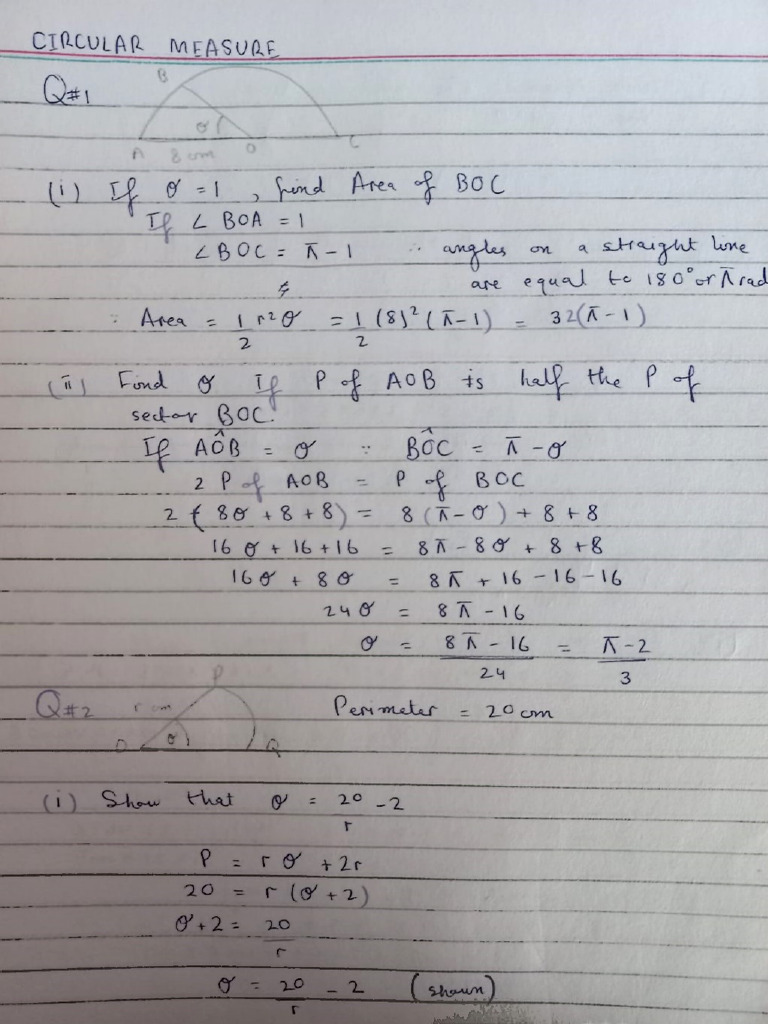 CIRCULAR MEASURE
Q#1
B
θ
A 8 cm O C
(i) If θ = 1 , find Area of BOC
If ∠ BOA = 1
∠ BOC = π - 1 ∵ angles on a straight line
are equal to 180° or π rad
∵ Area = 1/2 r²θ = 1/2 (8)² (π-1) = 32(π-1)
(ii) Find θ If P of AOB is half the P of
sector BOC.
If AÔB = θ ∵ BÔC = π - θ
2 P of AOB = P of BOC
2 (8θ + 8 + 8) = 8(π-θ) + 8 + 8
16θ + 16 + 16 = 8π - 8θ + 8 + 8
16θ + 8θ = 8π + 16 - 16 - 16
24θ = 8π - 16
θ = 8π - 16/24 = π-2/3
P
Q#2 r cm Perimeter = 20 cm
O θ Q
(i) Show that θ = 20/r - 2
P = rθ + 2r
20 = r (θ + 2)
θ + 2 = 20/r
θ = 20/r - 2 (shown)